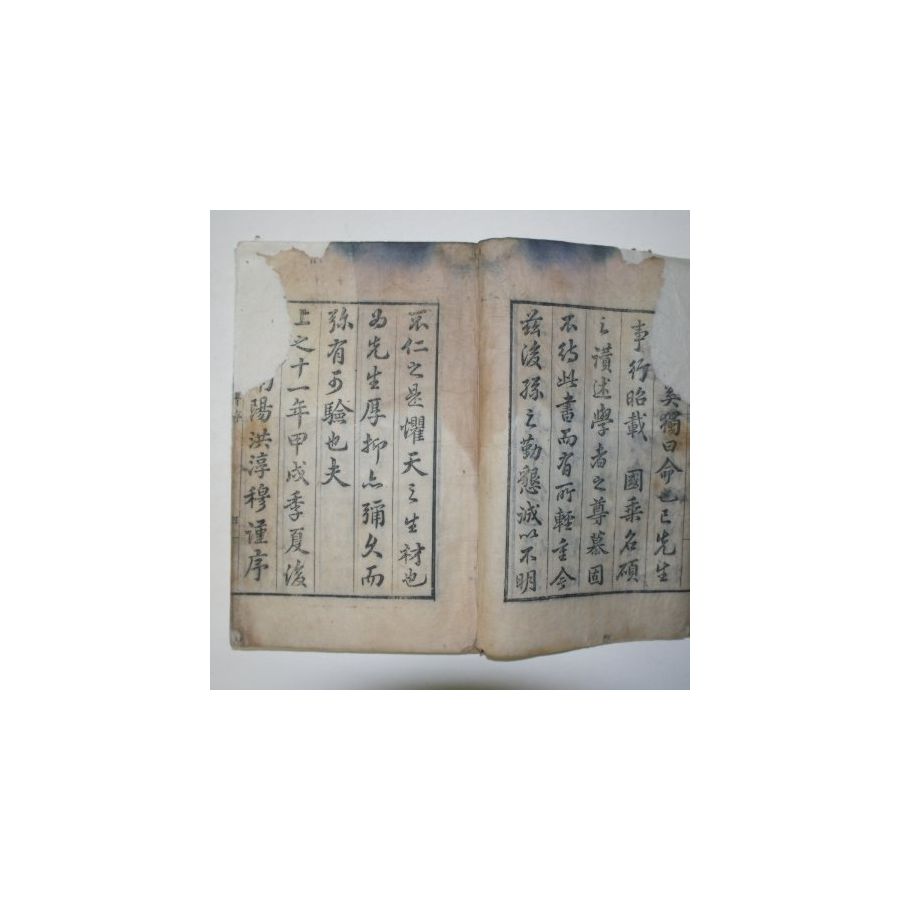 矣獨曰命也已先生
事行昭載 國乘名碩
之讚述學者之尊慕固
不待此書而有所輕重今
茲後孫之勤懇誠以不明
不仁之是懼天之生材也
為先生厚抑亦彌久而
彌有可驗也夫
上之十一年甲戌季夏後
陽洪淳穆謹序